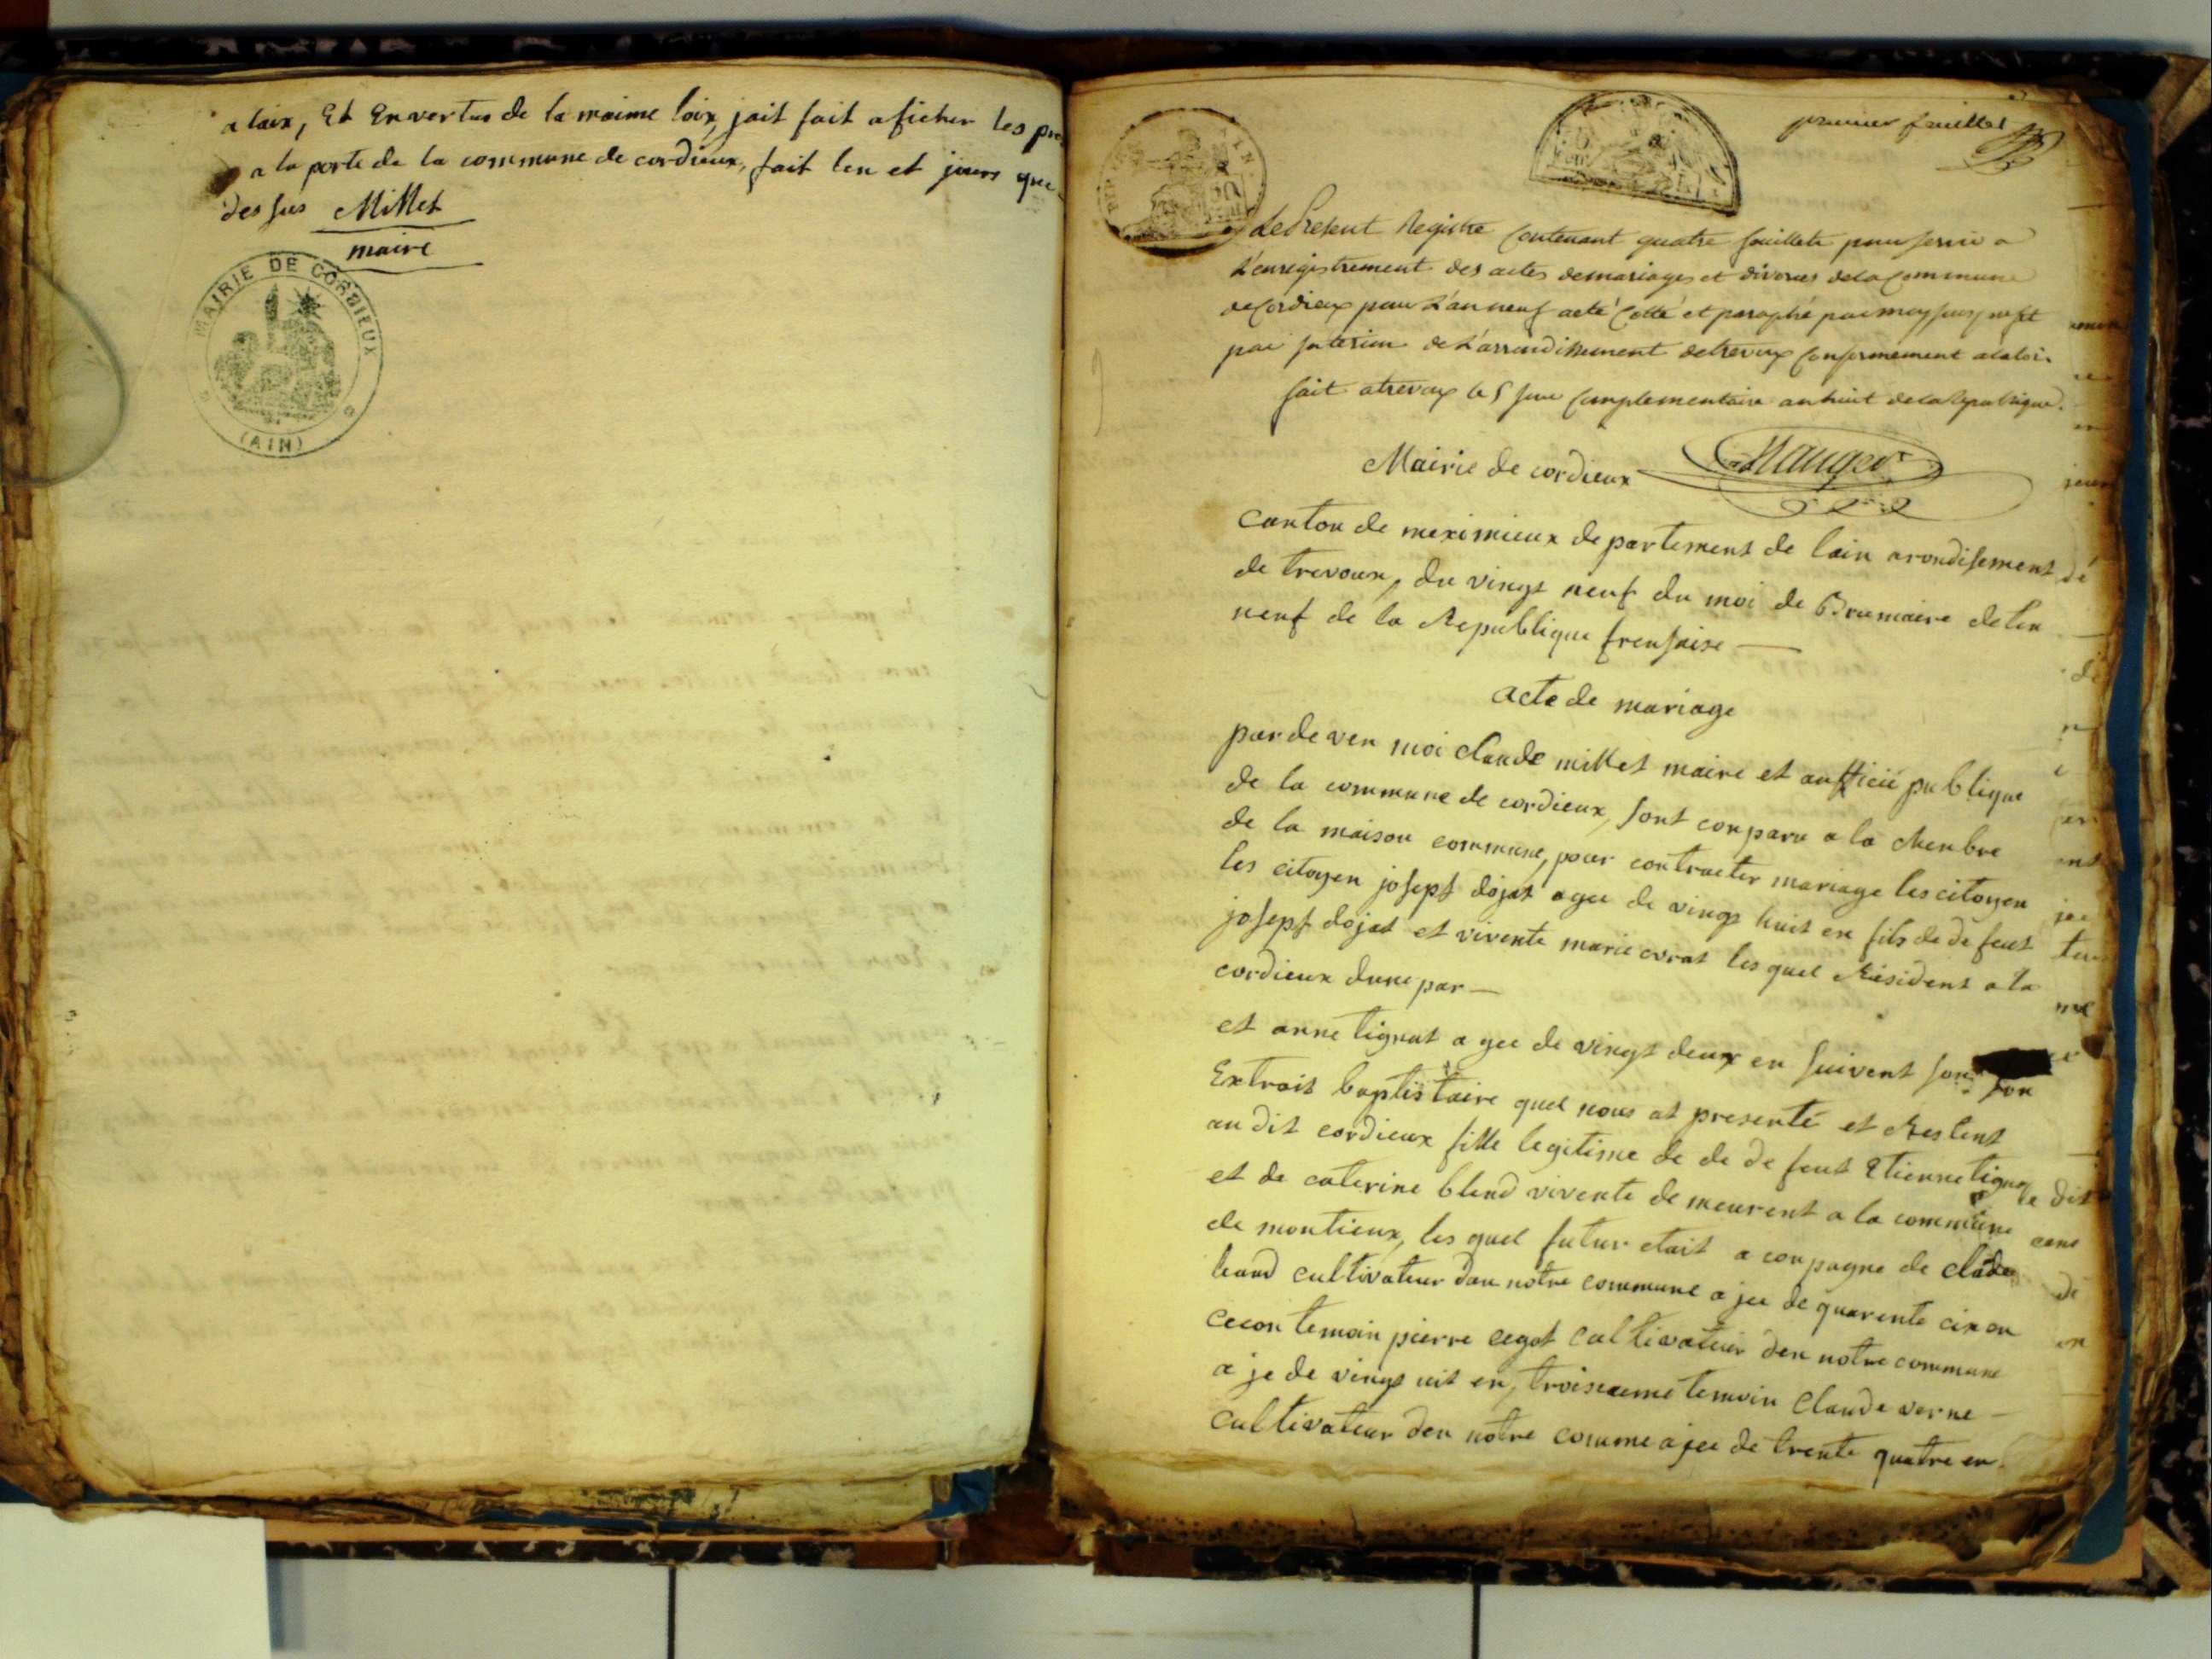 a laix, Et En vertus de la maime loix, jait fait aficher les pre
a la porte de la commune de cordieux, fait len et jours que
dessus Millet
maire
MAIRIE DE CORDIEUX
(AIN)
premier feuillet
Le Present Registre Contenant quatre feuillets pour servir a
L'enregistrement des actes de mariages et divorces de la Commune
de Cordieux pour L'an neuf a eté Cotté et paraphé par moy sous prefet
par interim de L'arrondissement de trevoux Conformement a la loi.
fait a trevoux le 5 jour Complementaire an huit de la Republique.
Mairie de cordieux
Canton de meximieux departement de lain arondisement
de trevoux, du vingt neuf du moi de Brumaire de len
neuf de la Republique frensaise
acte de mariage
par de ven moi claude millet maire et aufficié publique
de la commune de cordieux, sont conparu a la chenbre
de la maison commune, pour contracter mariage les citoyen
les citoyen josept dojat agee de vingt huit en fils de de feut
josept dojat et vivente marie les quel Résident a la
cordieux dune par
et anne tignat a gee de vingt deux en suivent son son
Extrait baptistaire quel nous at presenté et Restent
au dit cordieux fille legitime de de de feut Etienne tignat
et de caterine blend vivente de meurent a la commune
de montieux, les quel futur etait a conpagne de clade
cultivateur dan notre commune a jee de quarente cix en
cecon temoin pierre cegot Cultivateur den notre commune
a je de vingt uit en, troisieme temoin Claude verne
cultivateur den notre comme a jee de trente quatre en